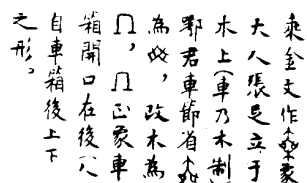 乘金文作象
大人張足立于
木上(車乃木制
鄂君車節省
為,改木為
,正象車
箱開口在後,人
自車箱後上下
之形。